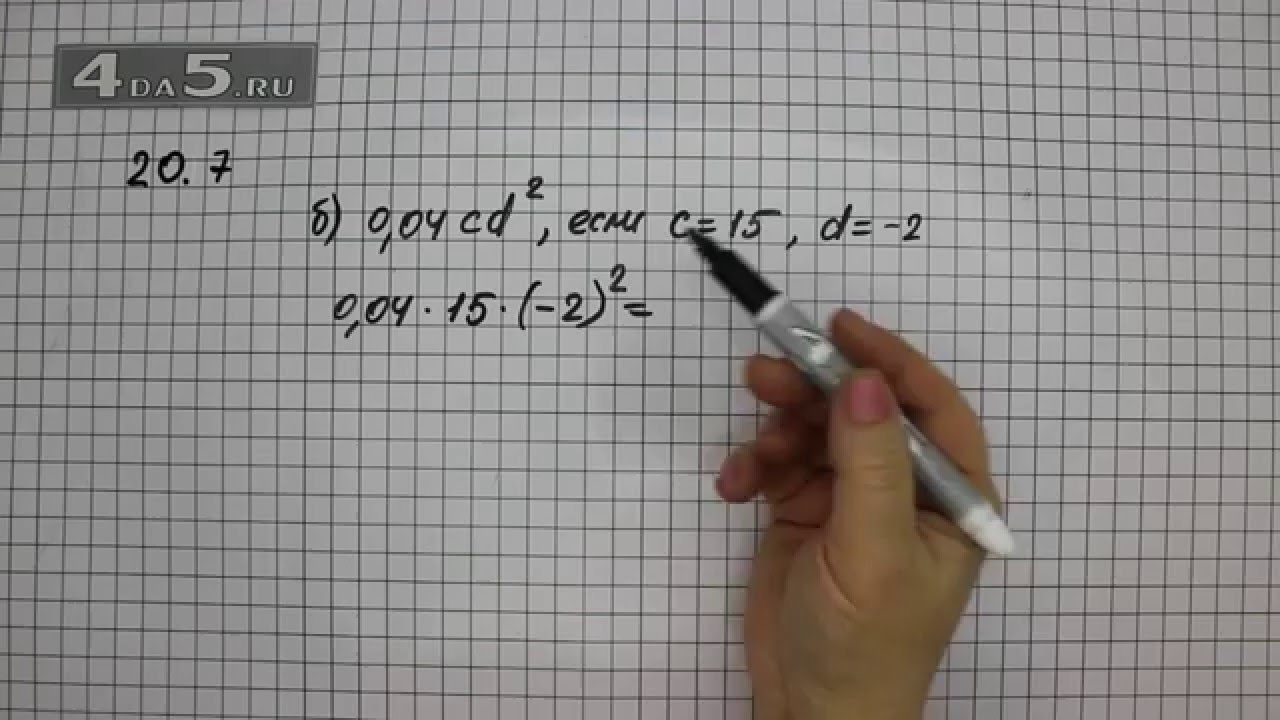 4DA5.RU
20.7
б) 0,04cd², если c=15, d=-2
0,04·15·(-2)²=